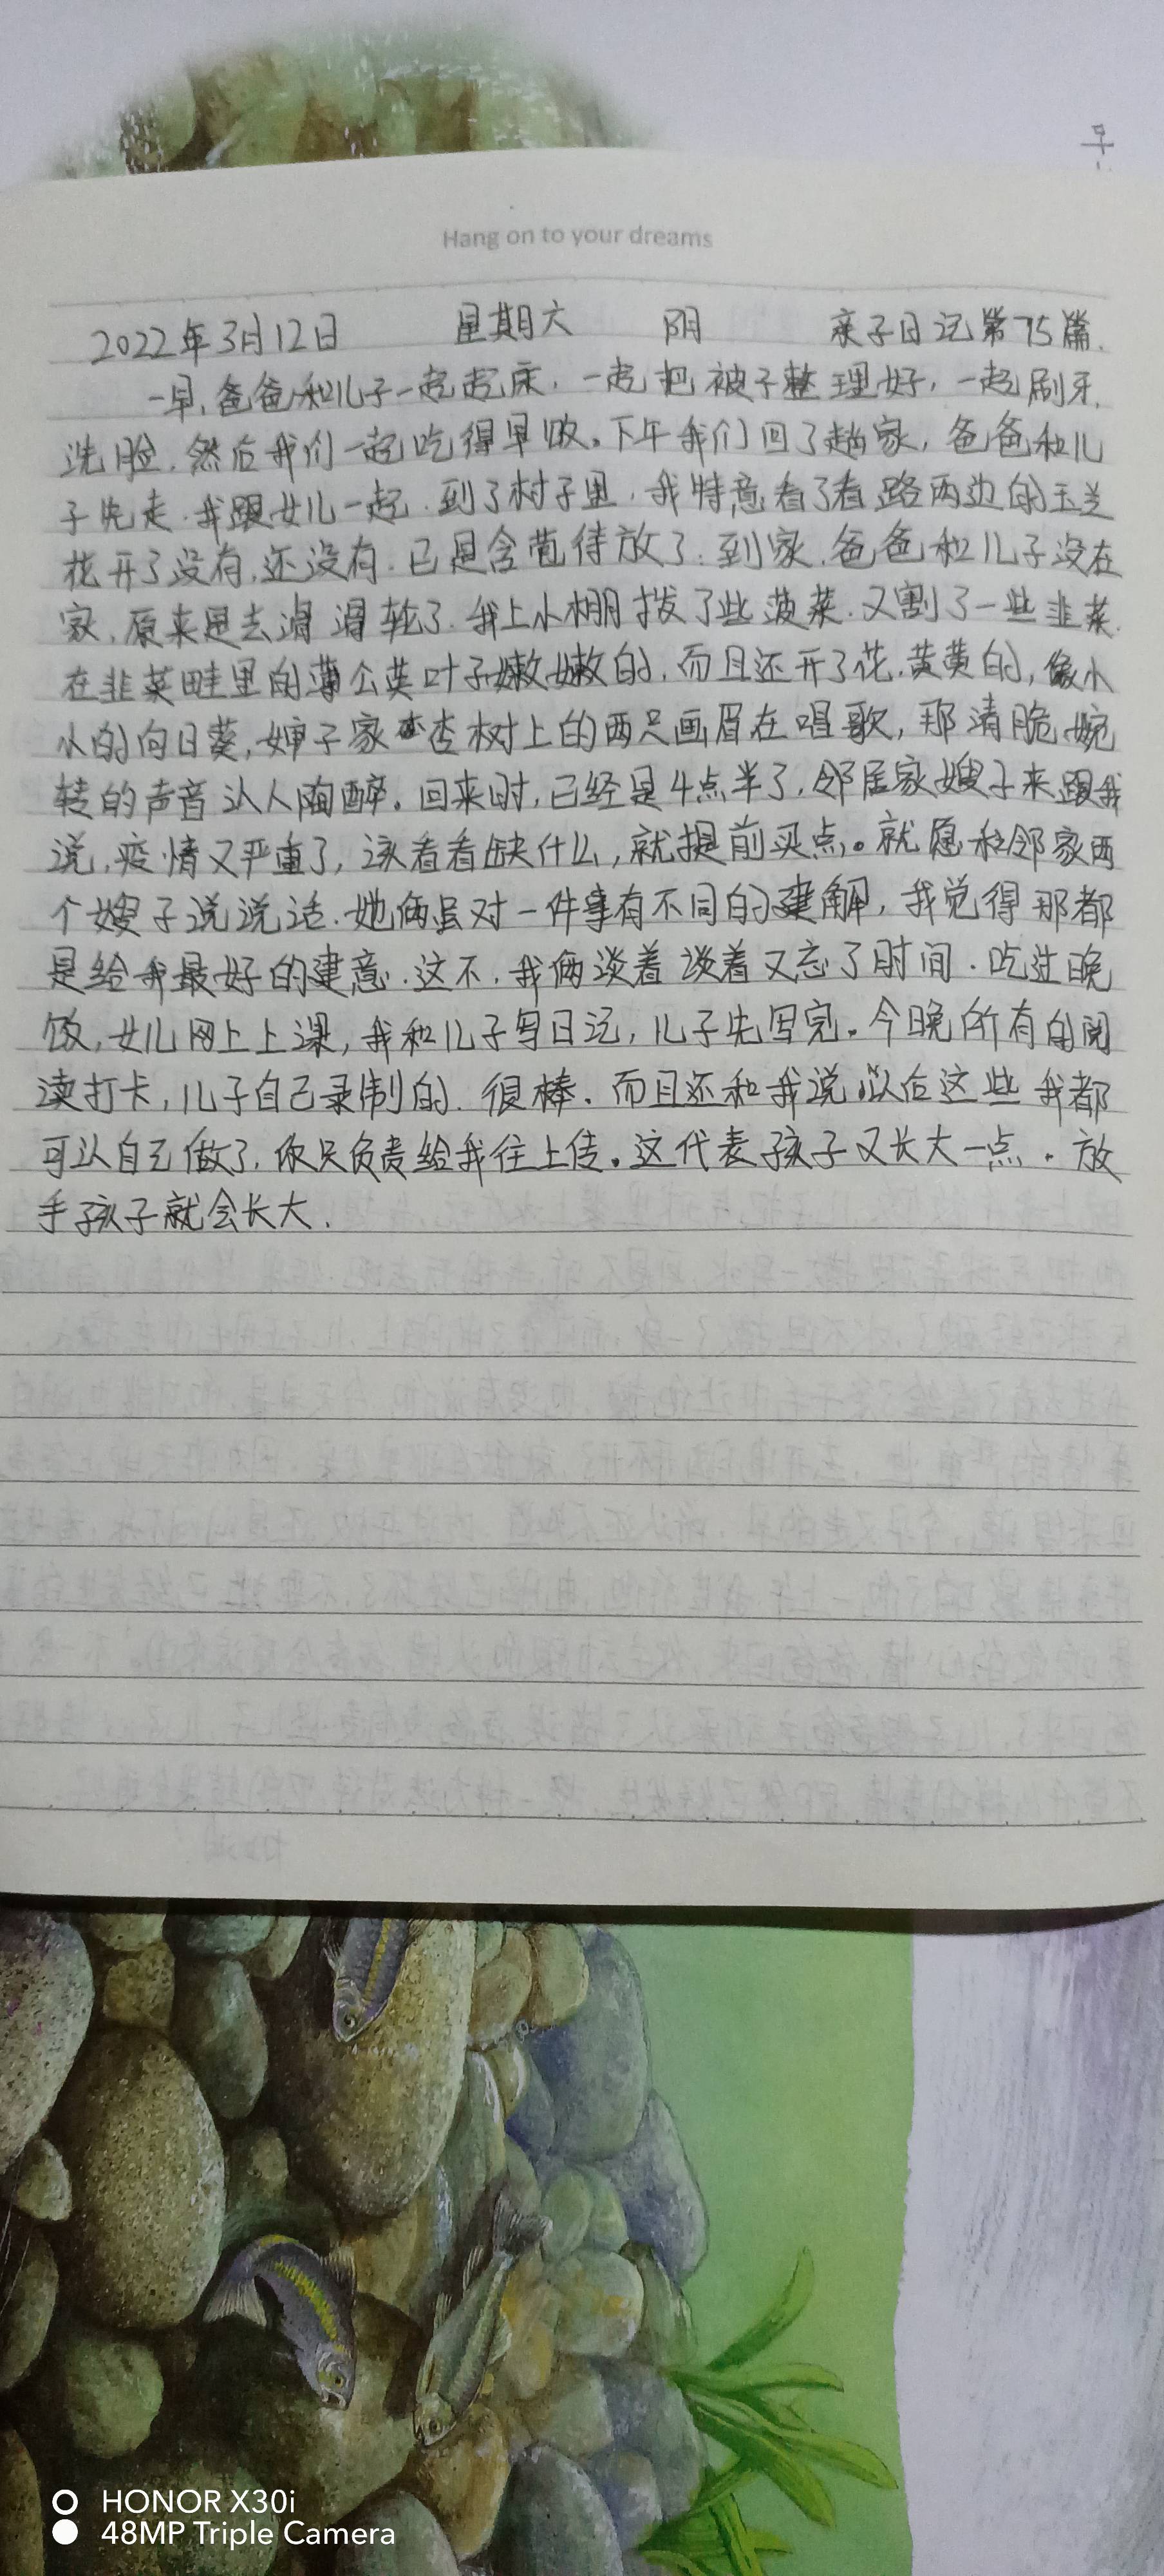 Hang on to your dreams
2022年3月12日 星期六 阴 亲子日记第75篇.
一早,爸爸和儿子一起起床,一起把被子整理好,一起刷牙,
洗脸,然后我们一起吃得早饭。下午我们回了趟家,爸爸和儿
子先走.我跟女儿一起.到了村子里,我特意看了看路两边的玉兰
花开了没有,还没有.已是含苞待放了.到家,爸爸和儿子没在
家,原来是去滑滑轮了.我上小棚拔了些菠菜.又割了一些韭菜.
在韭菜畦里的蒲公英叶子嫩嫩的,而且还开了花,黄黄的,像小
小的向日葵,婶子家杏树上的两只画眉在唱歌,那清脆婉
转的声音让人陶醉。回来时,已经是4点半了,邻居家嫂子来跟我
说,疫情又严重了,该看看缺什么,就提前买点。就愿和邻家两
个嫂子说说话.她俩虽对一件事有不同的建解,我觉得那都
是给我最好的建意.这不,我俩谈着谈着又忘了时间.吃过晚
饭,女儿网上上课,我和儿子写日记,儿子先写完.今晚所有的阅
读打卡,儿子自己录制的.很棒.而且还和我说以后这些我都
可以自己做了,你只负责给我往上传。这代表孩子又长大一点.放
手孩子就会长大.
HONOR X30i
48MP Triple Camera